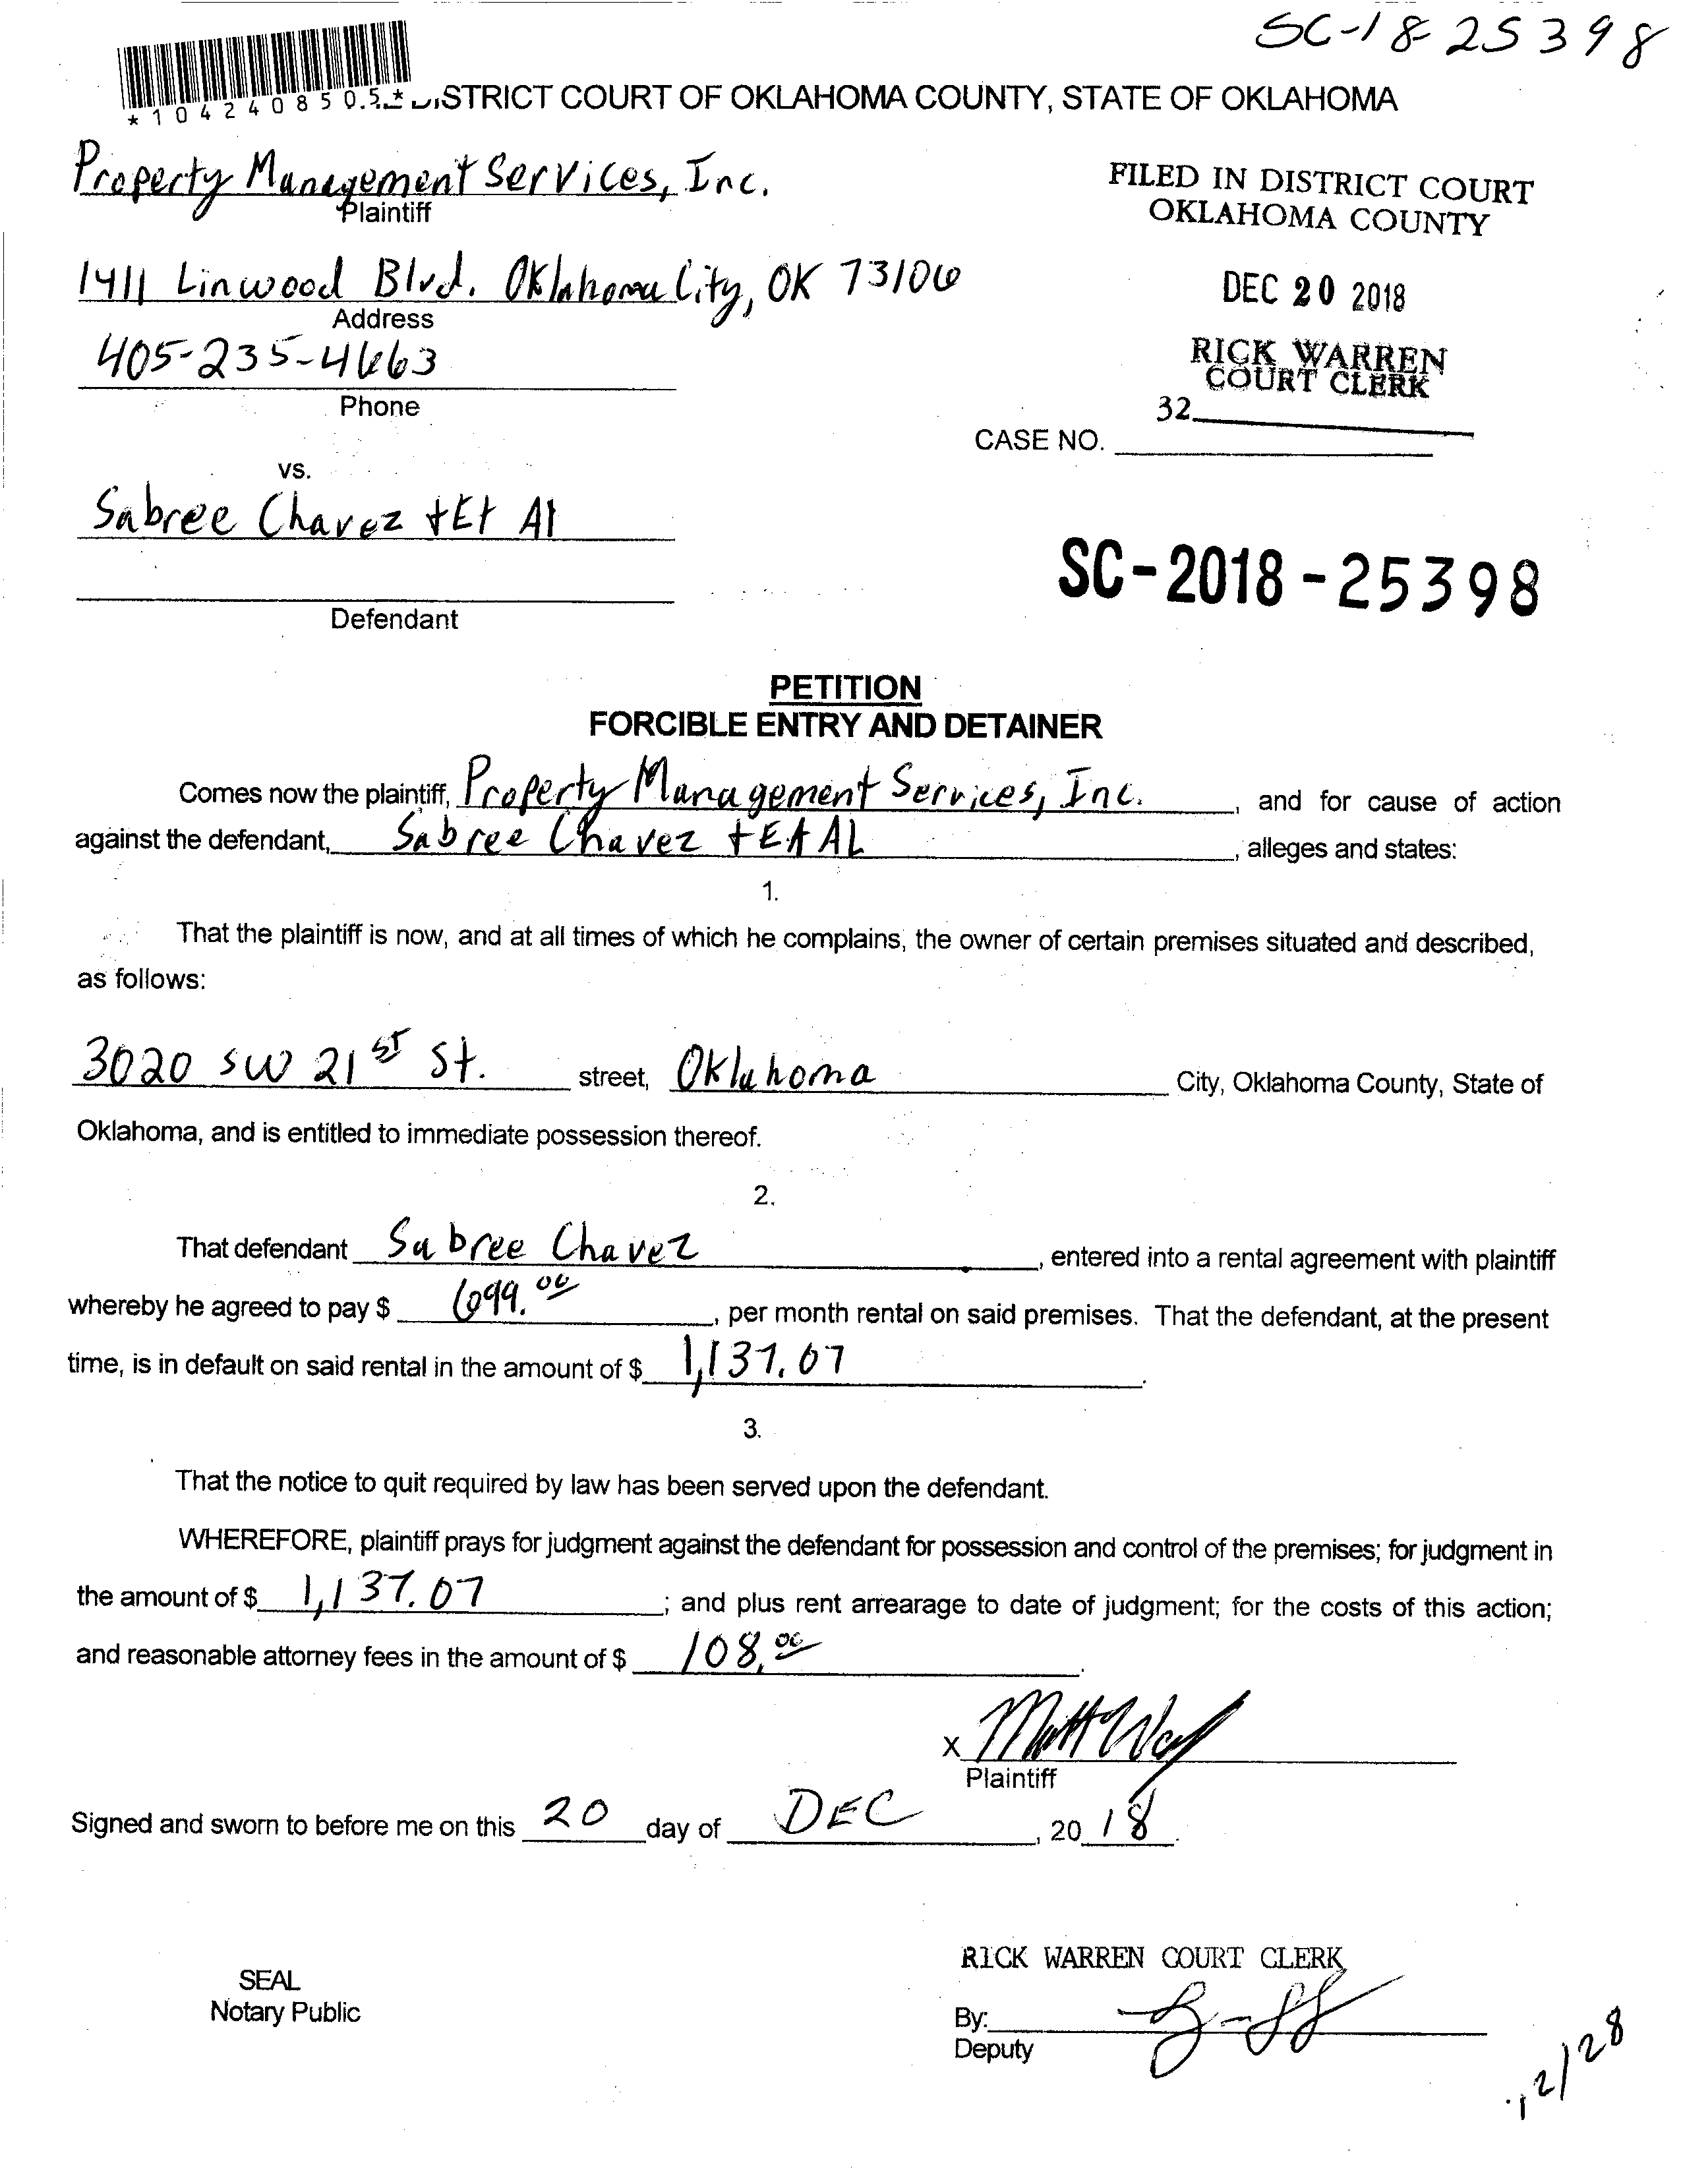 SC-18-25398
*1042408505*
DISTRICT COURT OF OKLAHOMA COUNTY, STATE OF OKLAHOMA
Property Management Services, Inc.
Plaintiff
FILED IN DISTRICT COURT
OKLAHOMA COUNTY
1411 Linwood Blvd. Oklahoma City, OK 73106
Address
DEC 20 2018
405-235-4663
Phone
RICK WARREN
COURT CLERK
32
CASE NO.
vs.
Sabree Chavez + Et Al
Defendant
SC-2018-25398
PETITION
FORCIBLE ENTRY AND DETAINER
Comes now the plaintiff, Property Management Services, Inc., and for cause of action
against the defendant, Sabree Chavez + Et AL, alleges and states:
1.
That the plaintiff is now, and at all times of which he complains, the owner of certain premises situated and described,
as follows:
3020 SW 21st St. street, Oklahoma City, Oklahoma County, State of
Oklahoma, and is entitled to immediate possession thereof.
2.
That defendant Sabree Chavez, entered into a rental agreement with plaintiff
whereby he agreed to pay $ 699.00, per month rental on said premises. That the defendant, at the present
time, is in default on said rental in the amount of $ 1,137.07.
3.
That the notice to quit required by law has been served upon the defendant.
WHEREFORE, plaintiff prays for judgment against the defendant for possession and control of the premises; for judgment in
the amount of $ 1,137.07; and plus rent arrearage to date of judgment; for the costs of this action;
and reasonable attorney fees in the amount of $ 108.00.
X
Plaintiff
Signed and sworn to before me on this 20 day of DEC, 2018.
RICK WARREN COURT CLERK
SEAL
Notary Public
By:
Deputy
12/28